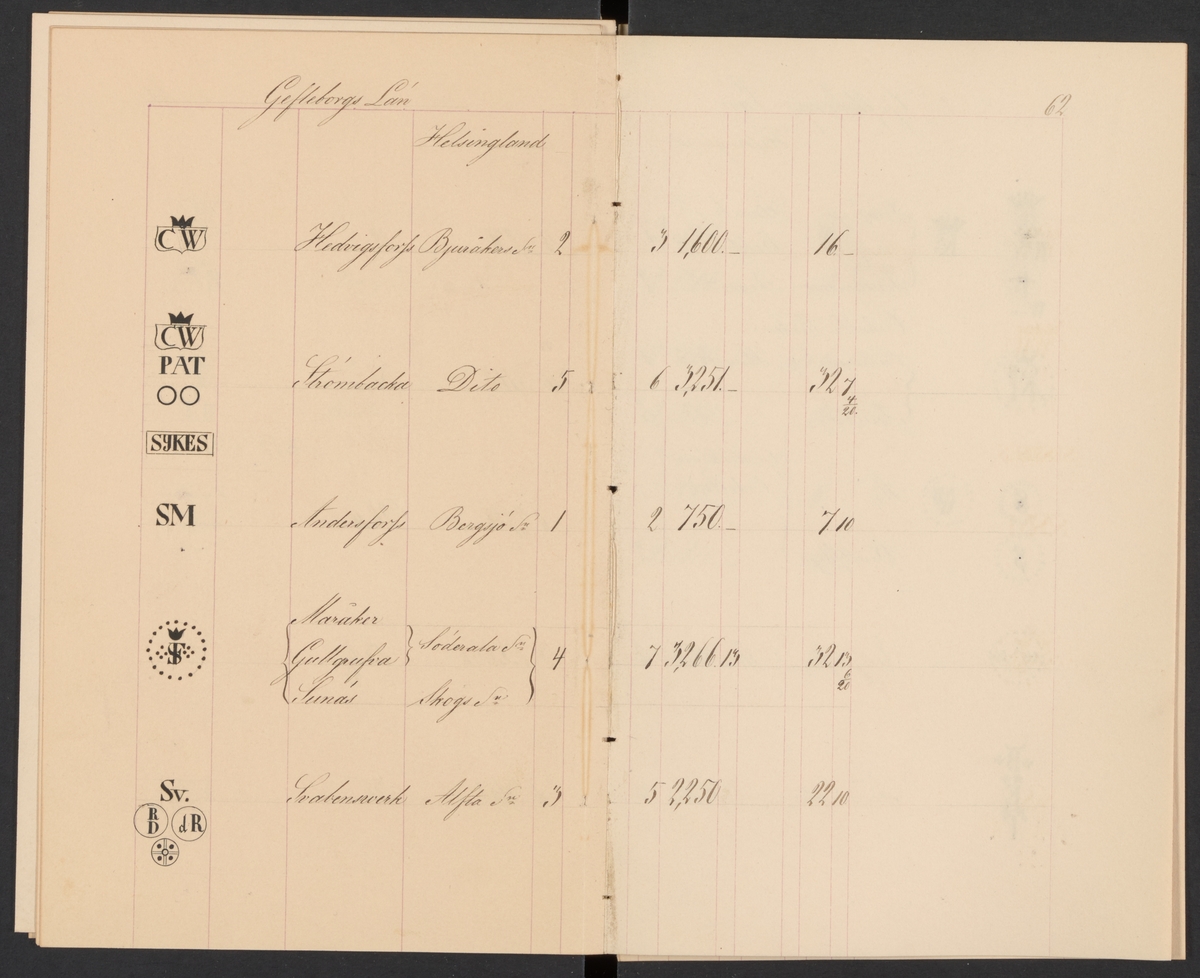 Gefleborgs Län
62
Helsingland
CW Hedvigsforss Bjuråkers Sn 2 3 1,600.— 16.—
CW
PAT
Strömbacka Dito 5 6 3,251.— 32 7 4/20
SYKES
SM Andersforss Bergsjö Sn 1 2 750.— 7 10
Maråker
Gullgrufva Söderala Sn 4 7 3,266.13 32 13 6/20
Sunäs Skogs Sn
Sv. Svabenswerk Alfta Sn 3 5 2,250 22 10
RD dR